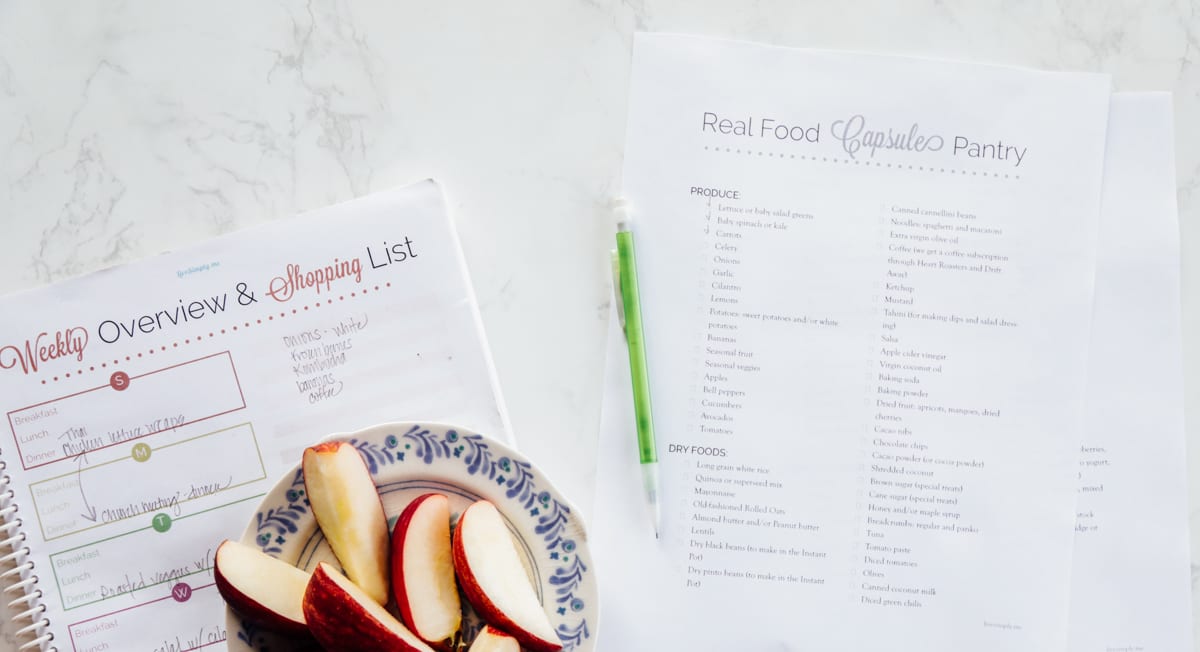 livesimply.me
Weekly Overview & Shopping List
S
Breakfast
Lunch
Dinner
Thai
chicken lettuce wraps
M
Breakfast
Lunch
Dinner church meeting - dinner
T
Breakfast
Lunch
Dinner Roasted veggies w/
W
Breakfast
Lunch
w/
onions - white
frozen berries
Kombucha
bananas
coffee
Real Food Capsule Pantry
PRODUCE:
Lettuce or baby salad greens
Baby spinach or kale
Carrots
Celery
Onions
Garlic
Cilantro
Lemons
Potatoes: sweet potatoes and/or white
potatoes
Bananas
Seasonal fruit
Seasonal veggies
Apples
Bell peppers
Cucumbers
Avocados
Tomatoes
DRY FOODS:
Long grain white rice
Quinoa or superseed mix
Mayonnaise
Old-fashioned Rolled Oats
Almond butter and/or Peanut butter
Lentils
Dry black beans (to make in the Instant
Pot)
Dry pinto beans (to make in the Instant
Pot)
Canned cannellini beans
Noodles: spaghetti and macaroni
Extra virgin olive oil
Coffee (we get a coffee subscription
through Heart Roasters and Drift
Away)
Ketchup
Mustard
Tahini (for making dips and salad dress-
ing)
Salsa
Apple cider vinegar
Virgin coconut oil
Baking soda
Baking powder
Dried fruit: apricots, mangoes, dried
cherries
Cacao nibs
Chocolate chips
Cacao powder (or cocoa powder)
Shredded coconut
Brown sugar (special treats)
Cane sugar (special treats)
Honey and/or maple syrup
Breadcrumbs: regular and panko
Tuna
Tomato paste
Diced tomatoes
Olives
Canned coconut milk
Diced green chilis
livesimply.me
berries,
yogurt,
mixed
stock
or
livesimply.me